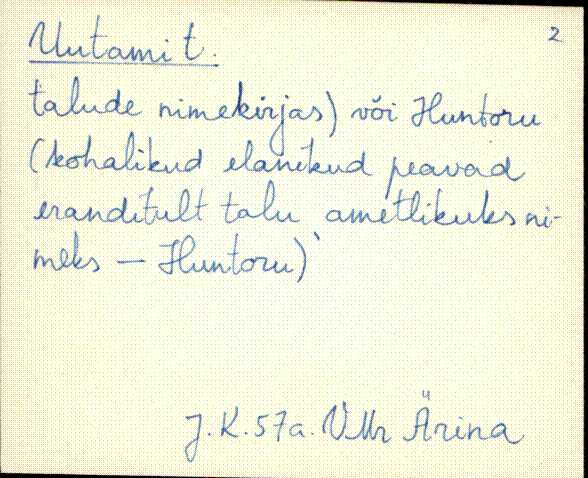 2
Uutami t.
talude nimekirjas) või Huntoru
(kohalikud elanikud peavad
eranditult talu ametlikuks ni-
meks — Huntoru)'
J.K. 57a. VMr Ärina